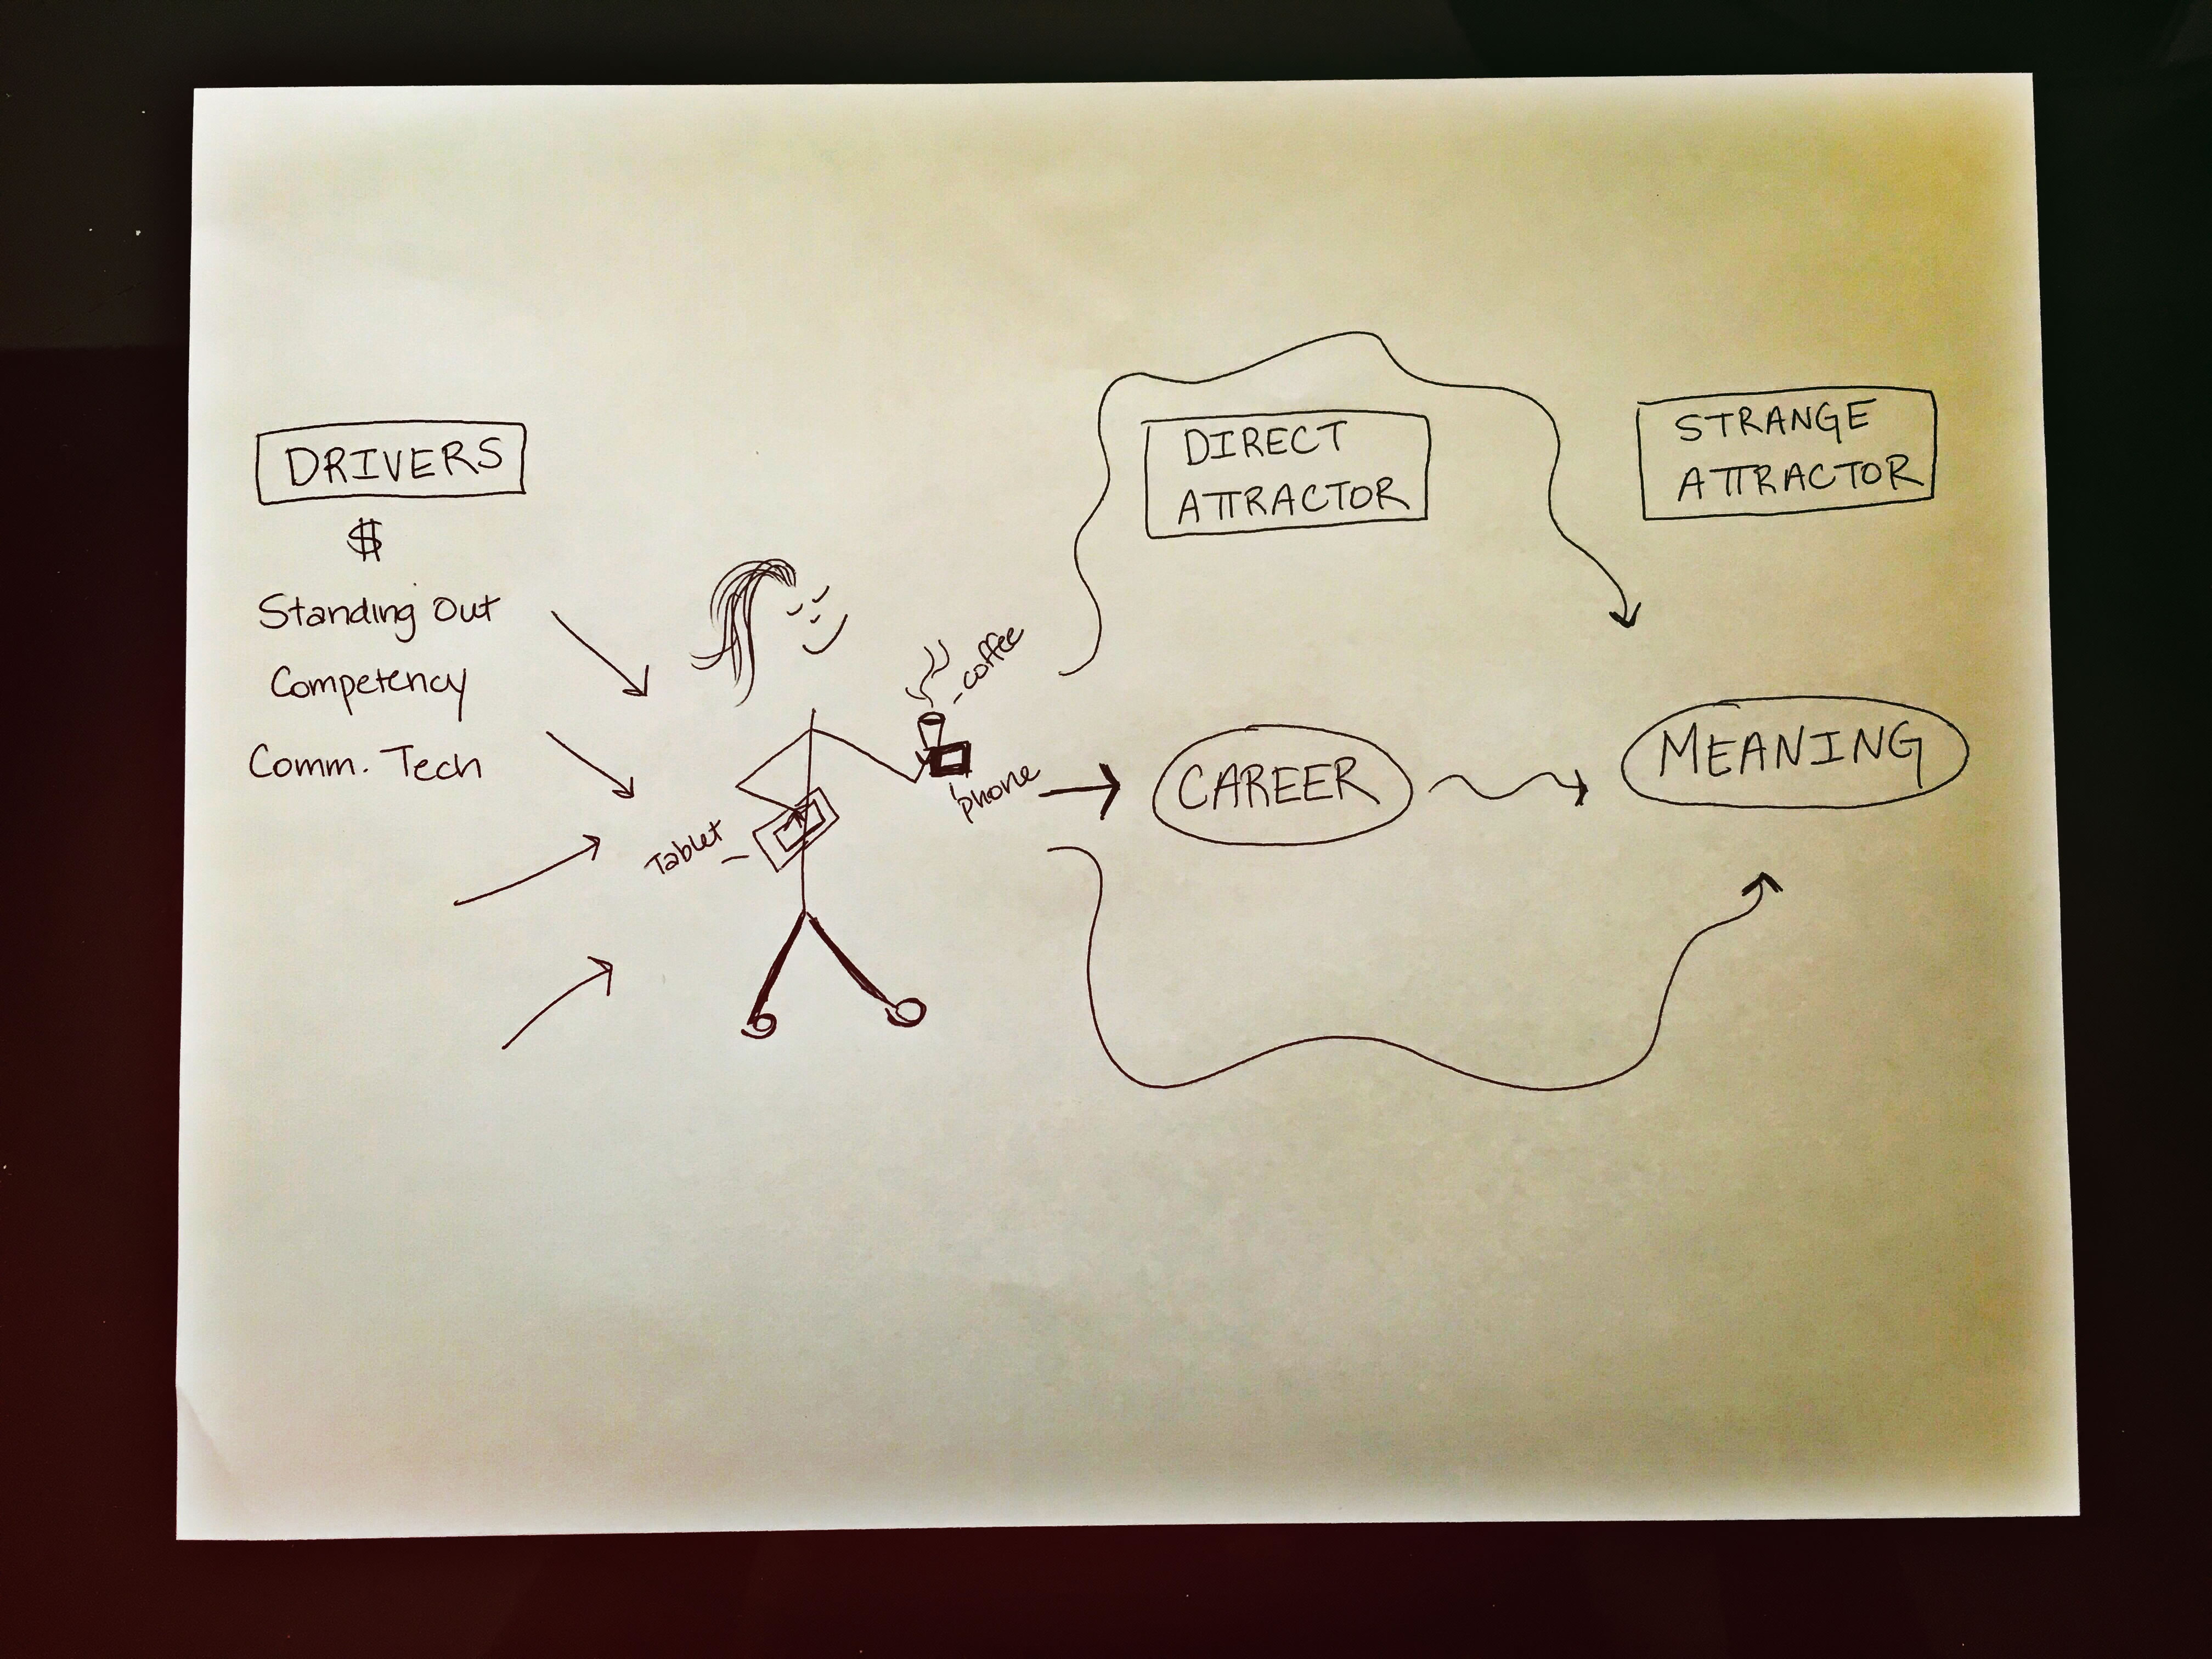 DRIVERS
$
Standing Out
Competency
Comm. Tech
Tablet
coffee
phone
DIRECT
ATTRACTOR
CAREER
STRANGE
ATTRACTOR
MEANING